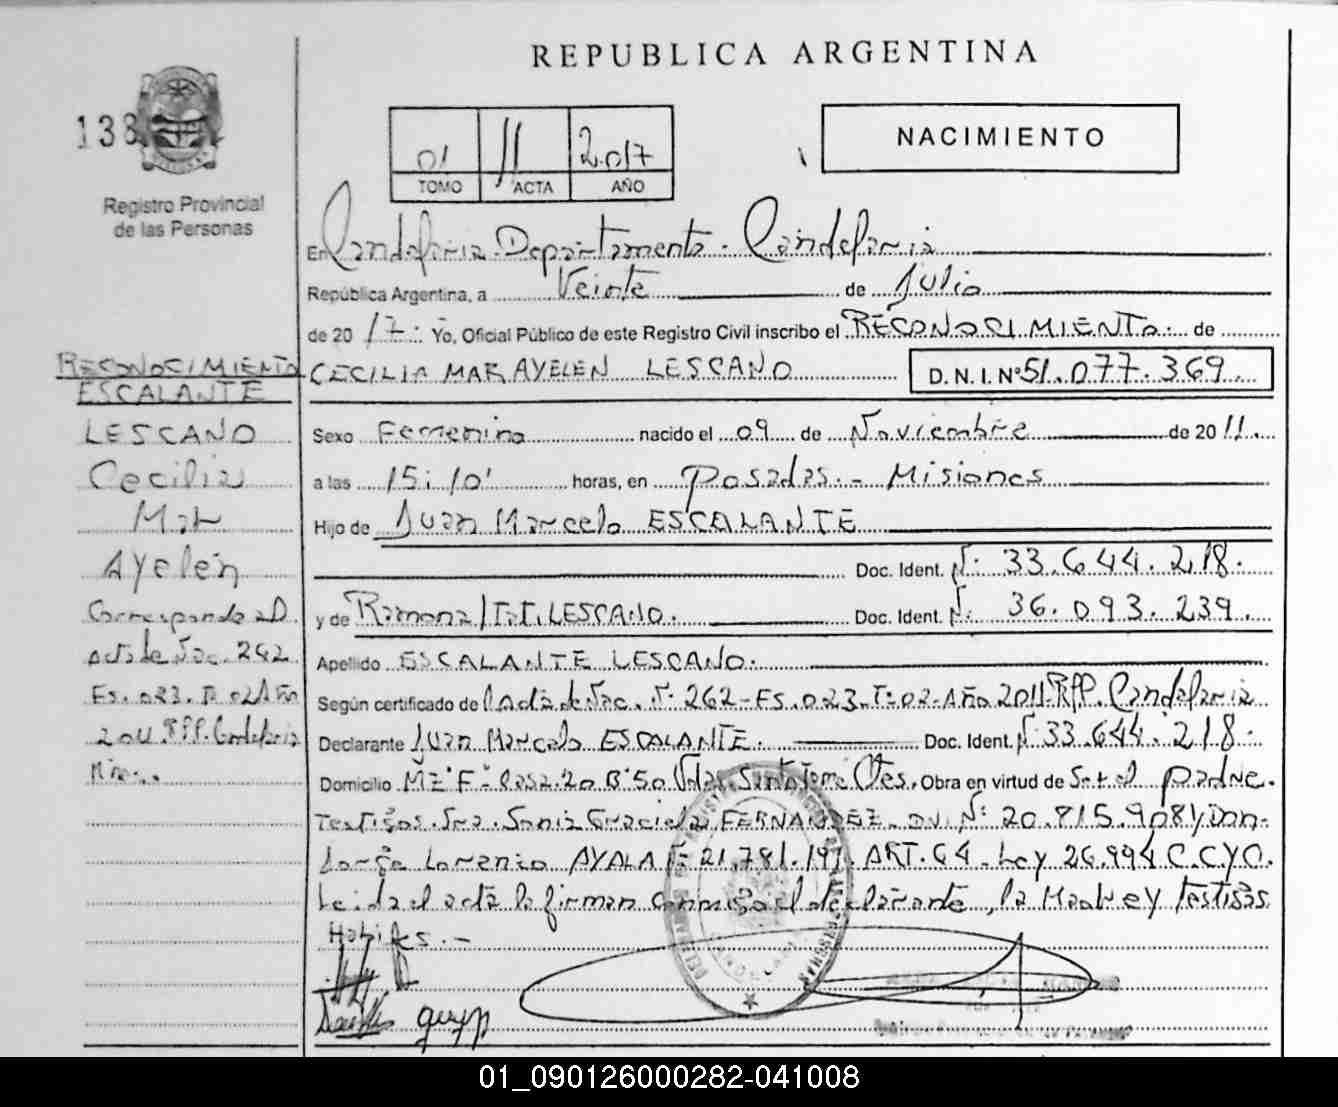 REPUBLICA ARGENTINA
138
Registro Provincial
de las Personas
01 11 2017
TOMO ACTA AÑO
NACIMIENTO
En Candelaria Departamento Candelaria
República Argentina, a Veinte de Julio
de 2017. Yo, Oficial Público de este Registro Civil inscribo el RECONOCIMIENTO de
CECILIA MAR AYELEN LESCANO D.N.I. Nº 51.077.369
Sexo Femenino nacido el 09 de Noviembre de 2011.
a las 15:10' horas, en Posadas.- Misiones
Hijo de Juan Marcelo ESCALANTE
Doc. Ident. Nº 33.644.218.
y de Ramona LESCANO. Doc. Ident. Nº 36.093.239.
Apellido ESCALANTE LESCANO.
Según certificado de Acta de Nac. Nº 262-FS.023.Tº 02-Año 2011 RPP. Candelaria
Declarante Juan Marcelo ESCALANTE. Doc. Ident. Nº 33.644.218.
Domicilio MZ"F"-Casa.20 Bº50 Vdas. Santo Tome Ctes. Obra en virtud de Ser el padre.
Testigos Sra. Sonia Graciela FERNANDEZ D.N.I. Nº 20.815.908 y Don
Jorge Lorenzo AYALA 21.781.191. ART. 64. Ley 26.994 C.C.Y.C.
Leida el acta la firman conmigo el declarante, la Madre y testigos
Habiles.-
RECONOCIMIENTO
ESCALANTE
LESCANO
Cecilia
Mar
Ayelén
Corresponde al
Acta de Nac. 262
Fs. 023. Tº 02 Año
2011 RPP. Candelaria
Mnes.
CANDELARIA
01_090126000282-041008